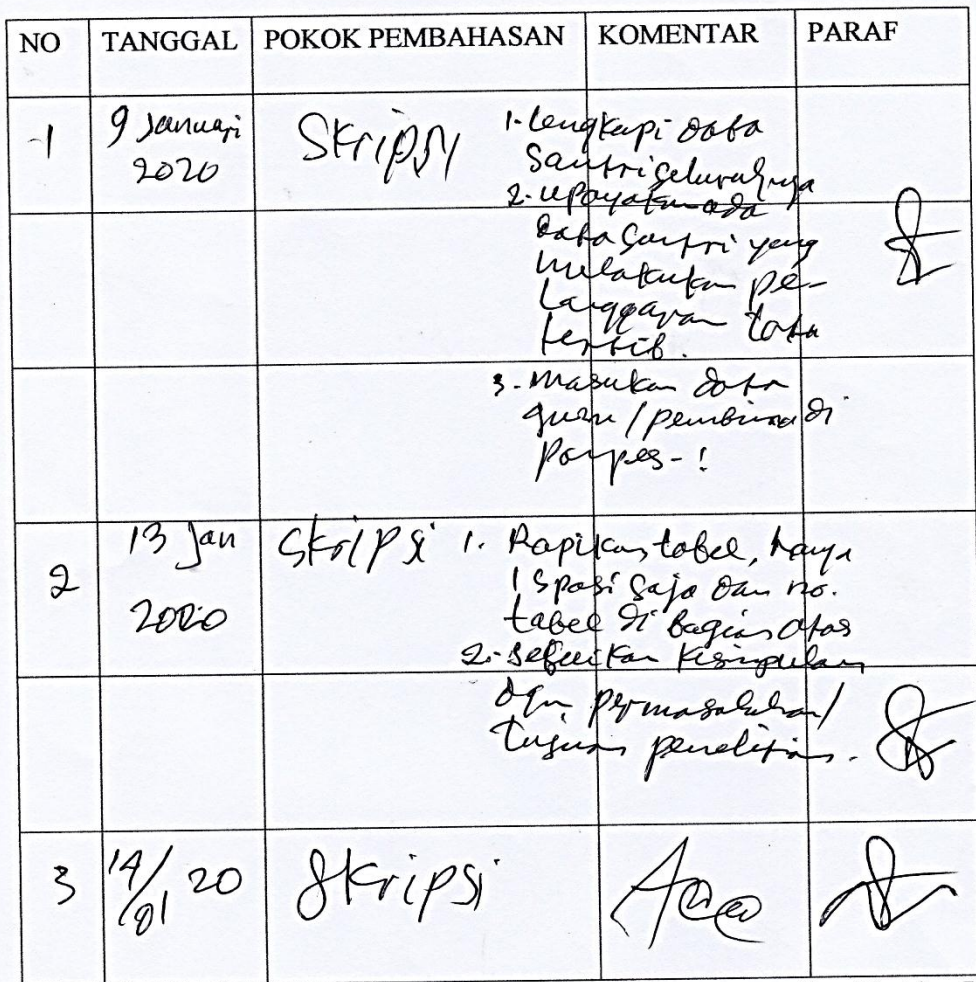 NO TANGGAL POKOK PEMBAHASAN KOMENTAR PARAF
1 9 Januari 2020 Skripsi 1. Lengkapi data
santri seluruhnya
2. upayakan ada
data santri yang
melakukan pe-
langgaran tata
tertib.
3. masukan data
guru / pembina di
Ponpes - !
2 13 Jan 2020 Skripsi 1. Rapikan tabel, hanya
1 spasi saja dan no.
tabel di bagian atas
2. Sesuikan kesimpulan
dgn permasalahan/
tujuan penelitian.
3 14/01 20 Skripsi Acc